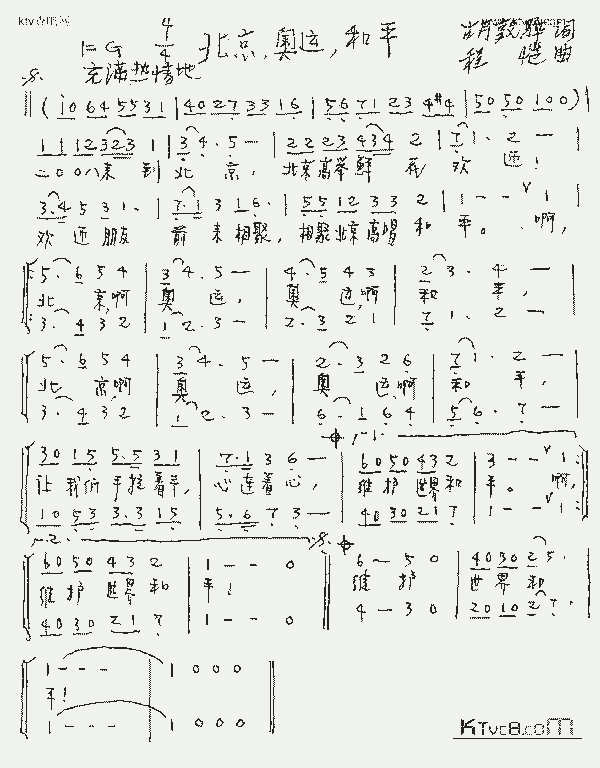 1=G 4/4 北京,奥运,和平
充满热情地
词
程 曲
(i0 64 55 31 | 40 27 33 16 | 56 71 23 4#4 | 50 50 100) |
1 1 12 323 1 | 3·4· 5 — | 22 23 434 2 | 7 1· 2 —
二00八来到北京, 北京高举鲜花欢迎!
3·4 5 31· | 7·1 3 16· | 55 12 33 2 | 1 - - ˅1
欢迎朋友前来相聚,相聚北京高唱和平。啊,
5· 6 5 4 | 3 4· 5 — | 4· 5 4 3 | 2 3· 4 —
北京,啊奥运, 奥运,啊和平,
3· 4 3 2 | 1 2· 3 — | 2· 3 2 1 | 7 1· 2 —
5· 6 5 4 | 3 4· 5 — | 2· 3 2 6 | 7 1· 2 —
北京,啊奥运, 奥运,啊和平,
3· 4 3 2 | 1 2· 3 — | 6· 1 6 4 | 5 6· 7 —
30 15 5·5 31 | 7·1 3 6 — | 60 50 43 2 | 3 - - ˅1
让我们手拉着手,心连着心, 维护世界和平。啊,
10 53 3·3 15 | 5·6 7 3 — | 40 30 21 7 | 1 - - ˅1
60 50 43 2 | 1 - - 0 | 6 — 5 0 | 40 30 2 5·
维护世界和平! 维护世界和
40 30 21 7 | 1 - - 0 | 4 — 3 0 | 20 10 2 7·
1 - - - | 1 0 0 0
平!
1 - - - | 1 0 0 0
KTvc8.com